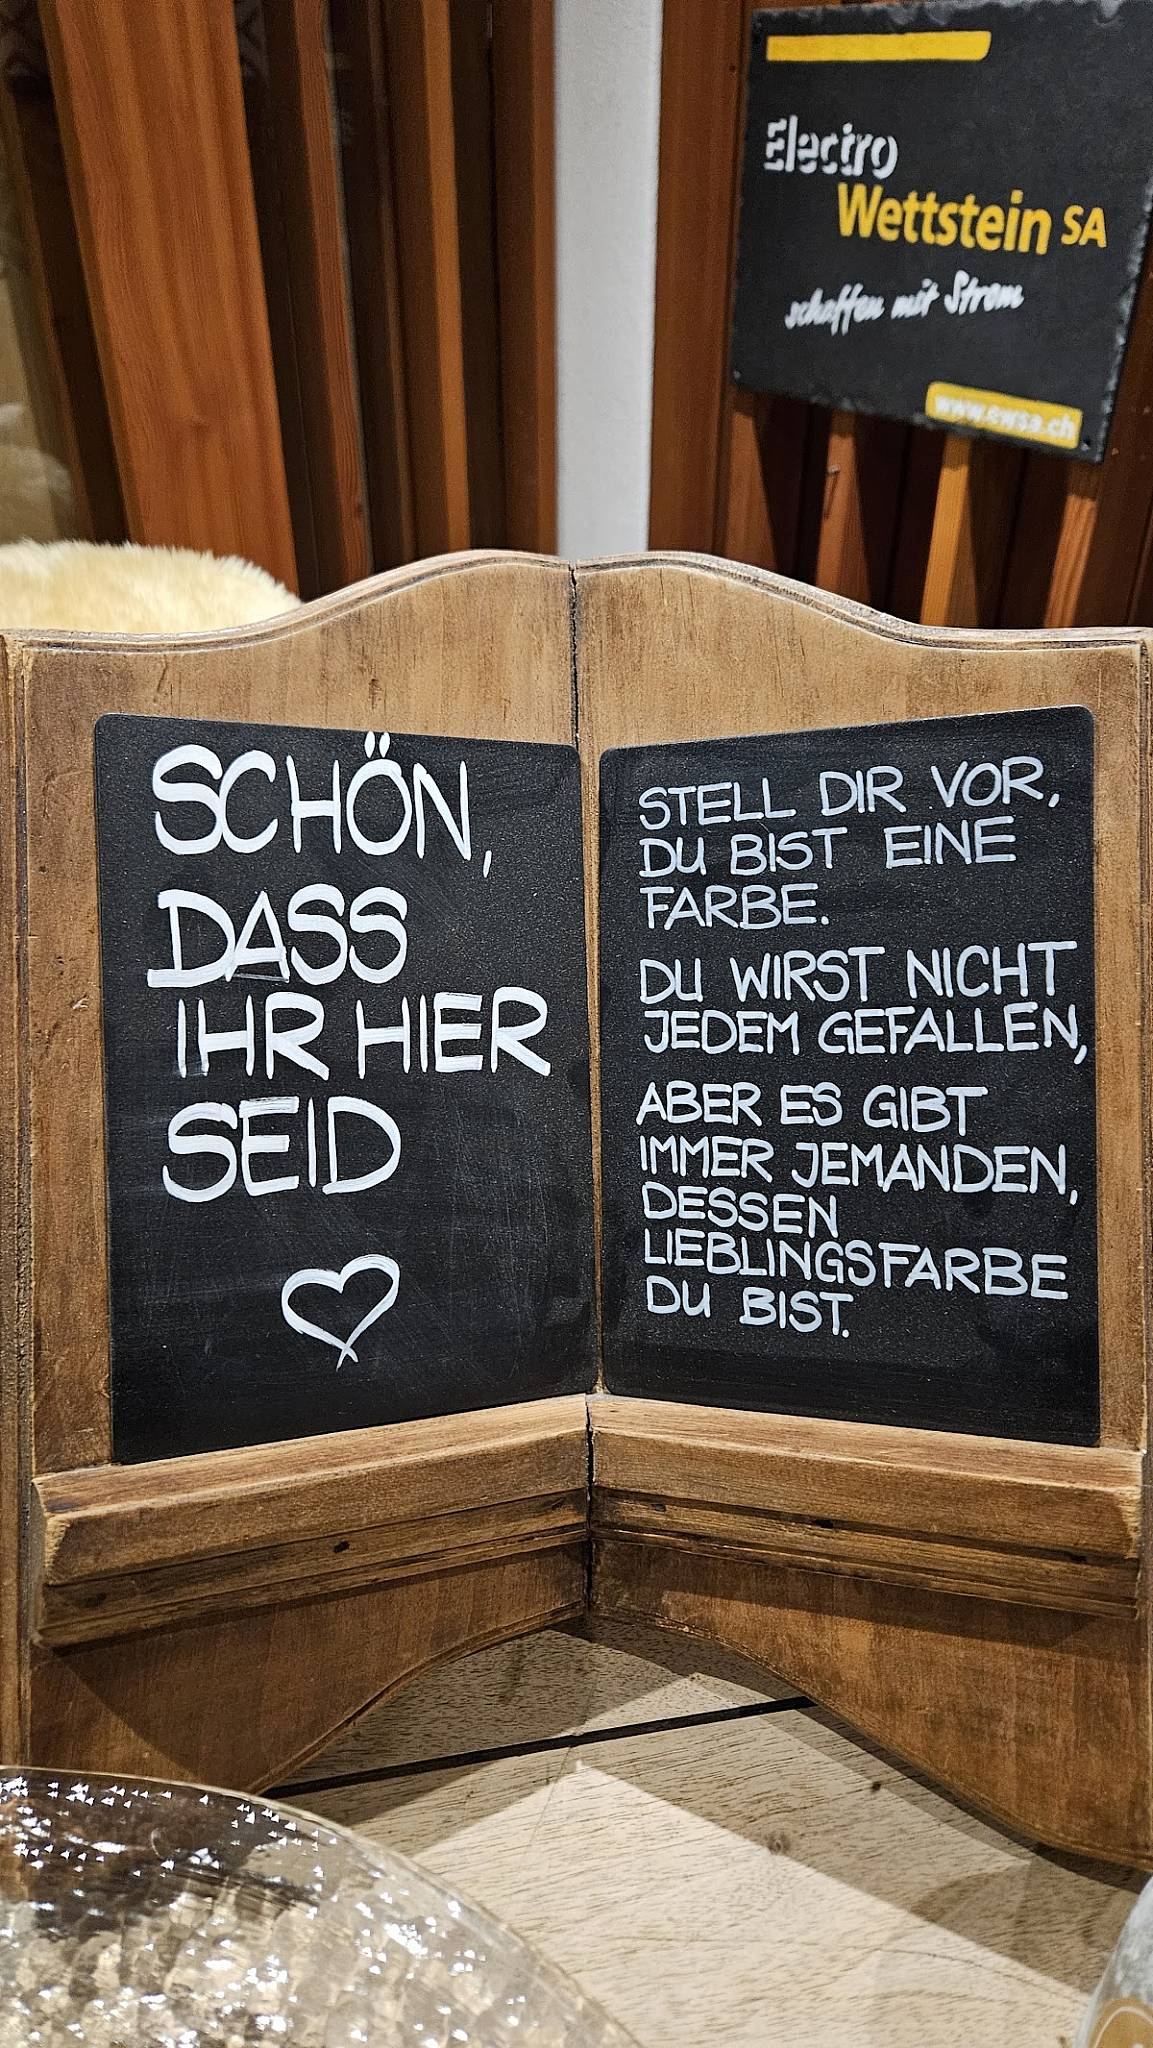 Electro
Wettstein SA
schaffen mit Strom
www.ewsa.ch
SCHÖN,
DASS
IHR HIER
SEID
STELL DIR VOR,
DU BIST EINE
FARBE.
DU WIRST NICHT
JEDEM GEFALLEN,
ABER ES GIBT
IMMER JEMANDEN,
DESSEN
LIEBLINGSFARBE
DU BIST.